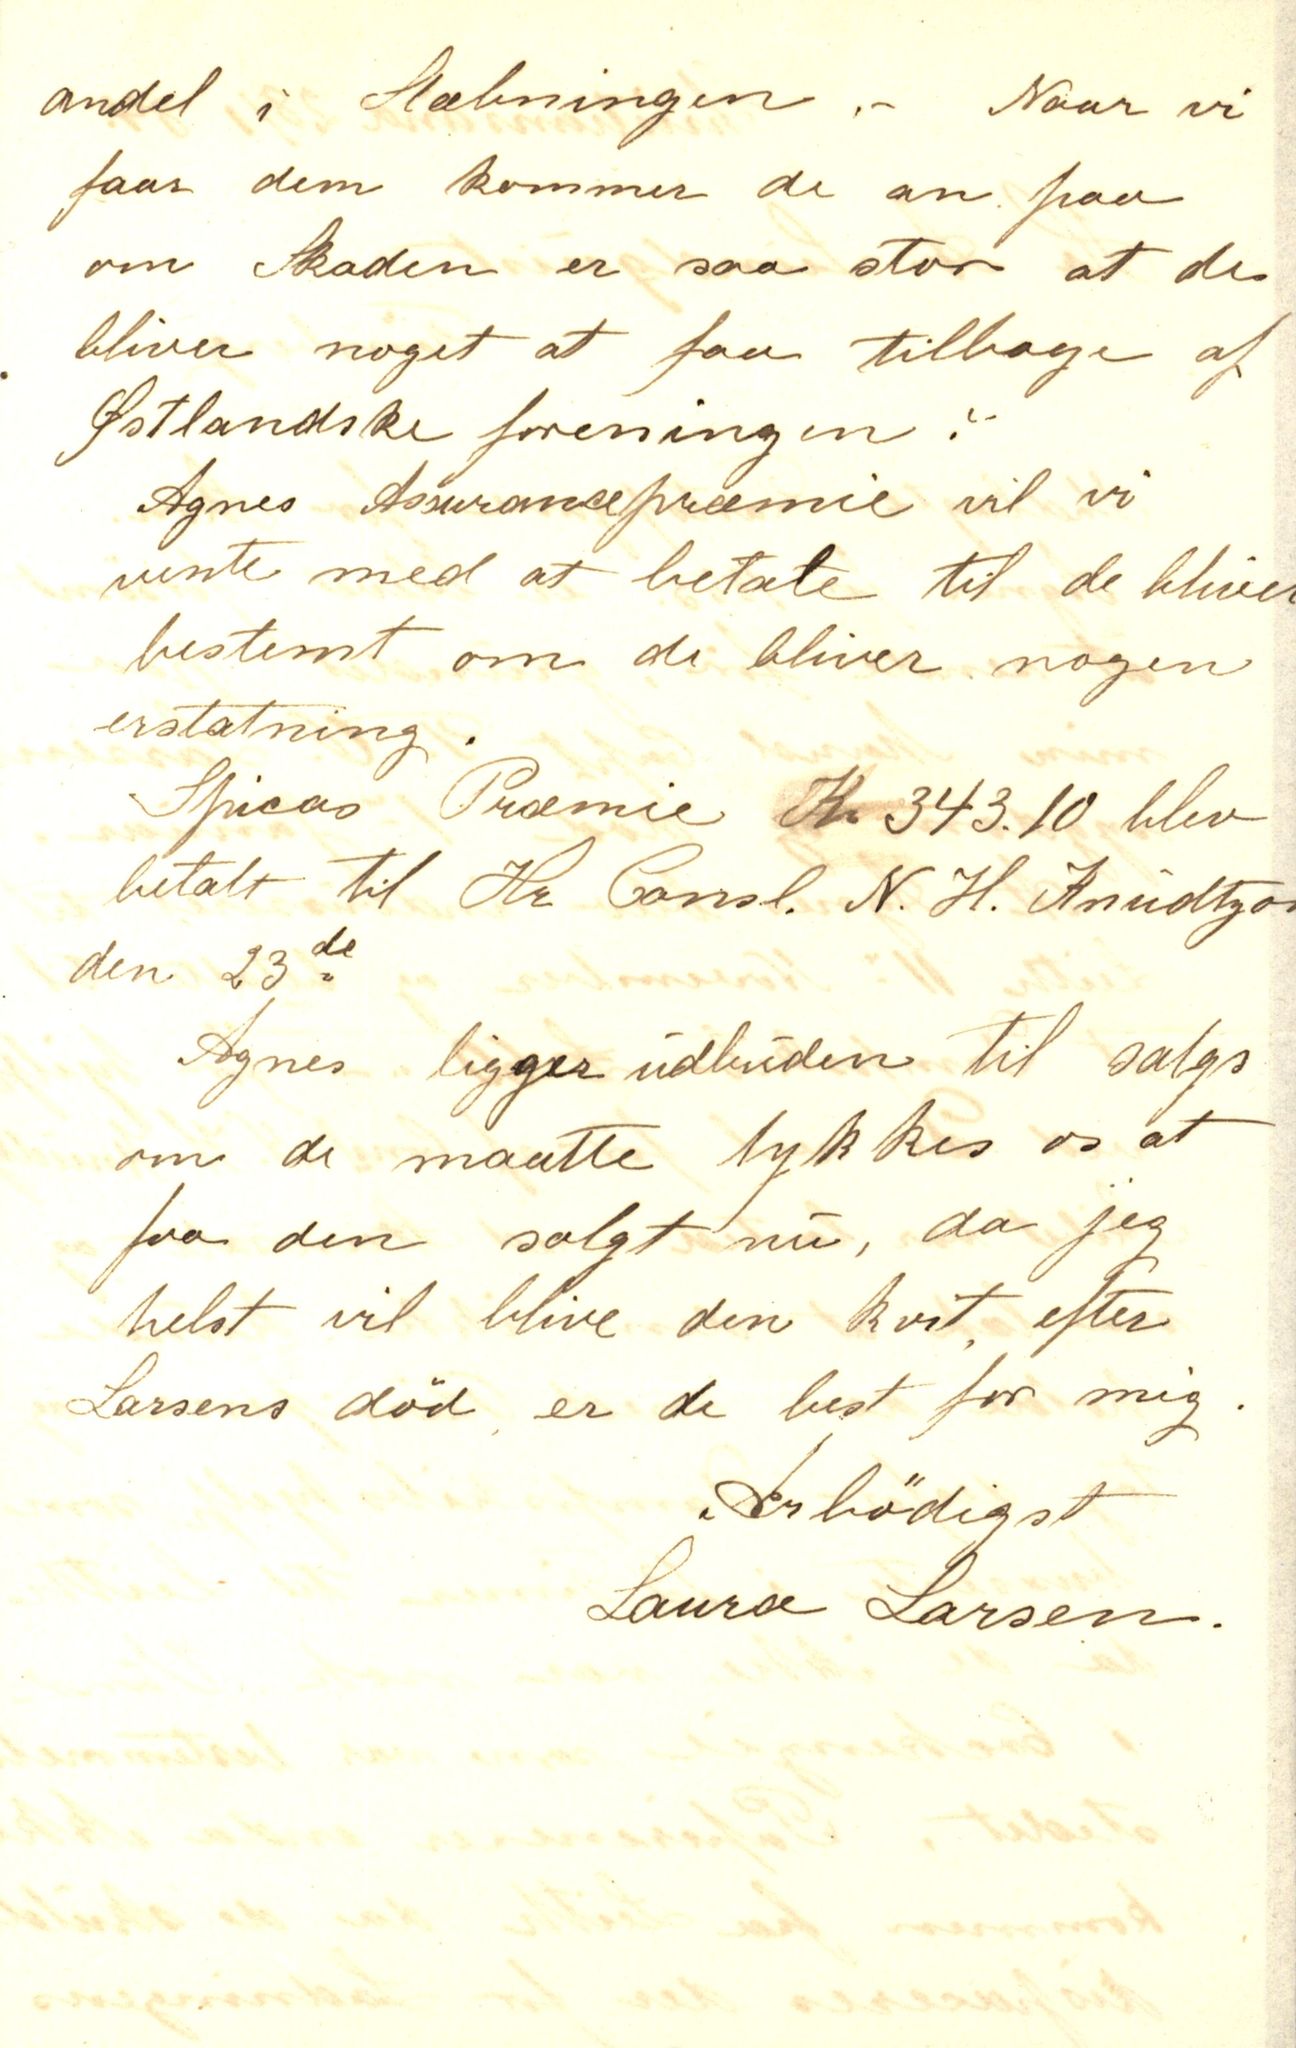 andel i Slæbningen .- Naar vi
faar dem kommer de an paa
om Skaden er saa stor at de
bliver noget at faa tilbage af
Østlandske foreningen .-
Agnes Assurancepræmie vil vi
vente med at betale til de bliver
bestemt om de bliver nogen
erstatning.
Spicas Præmie Kr 343.10 blev
betalt til Hr Consl. N. H. Knüdtzon
den 23de
Agnes ligger üdbüden til salgs
om de maatte lykkes os at
faa den solgt nü, da jeg
helst vil blive den kvit, efter
Larsens död, er de best for mig.
Ærbödigst
Laura Larsen.